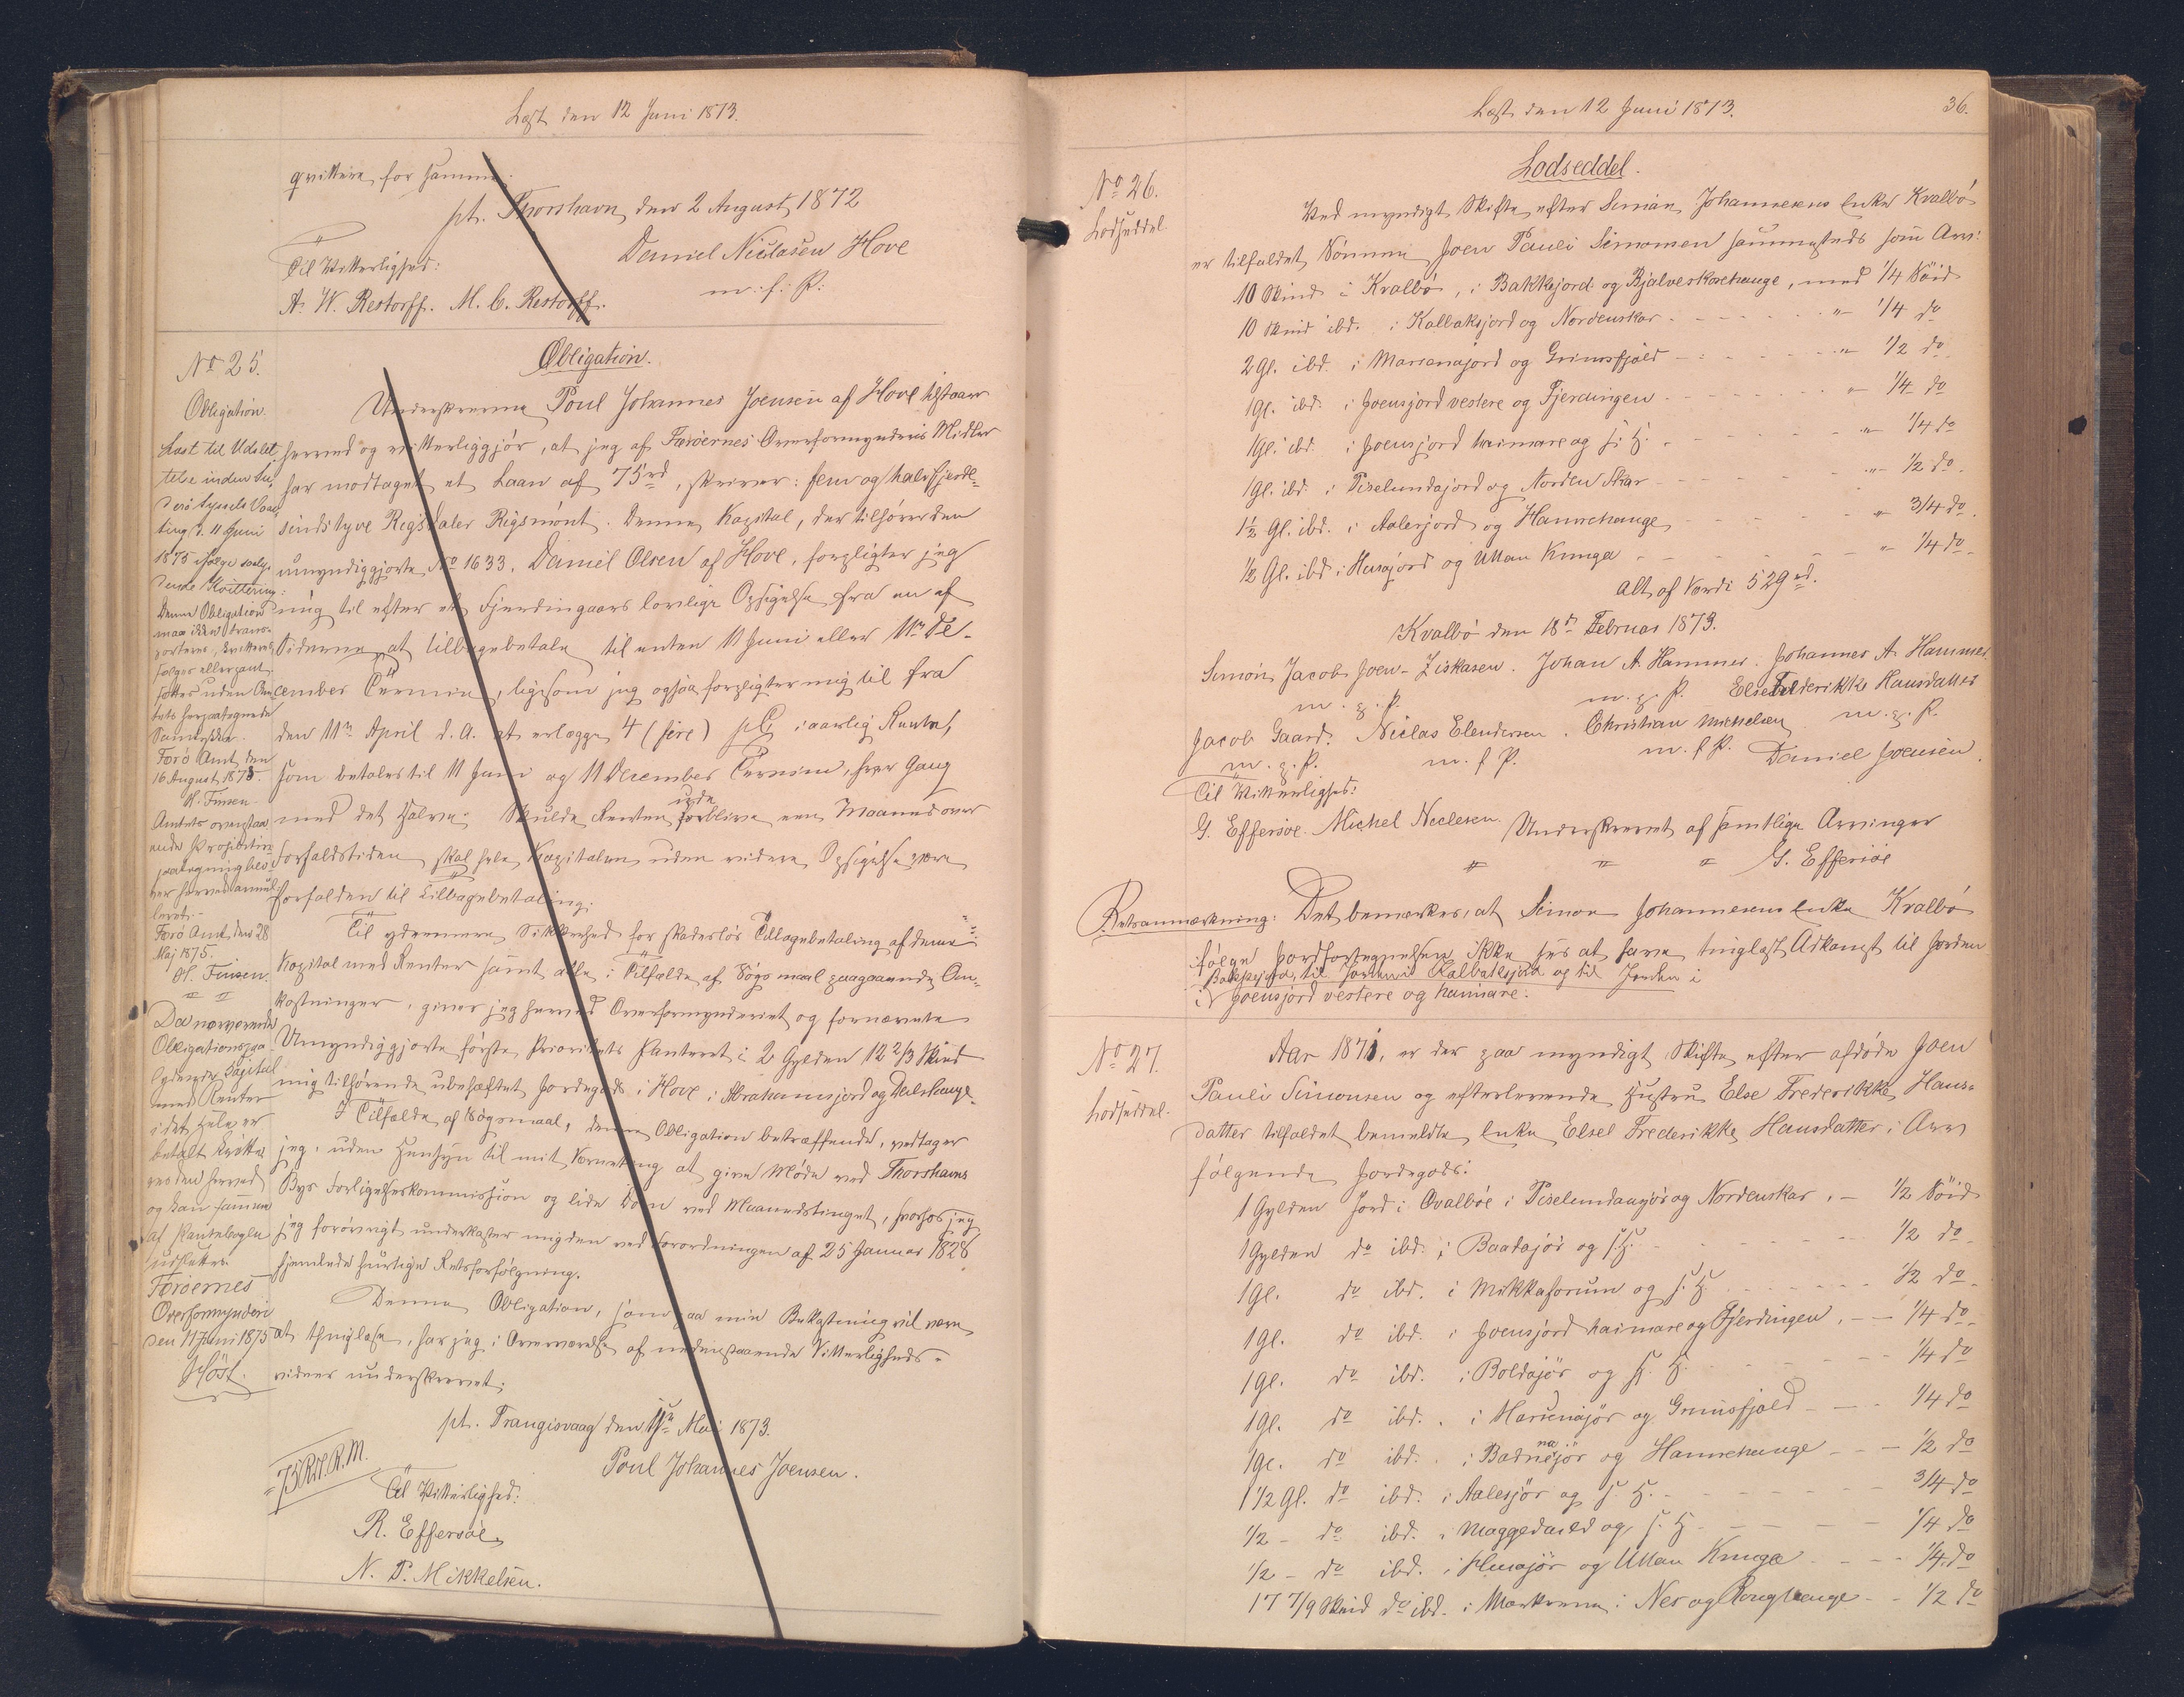 Læst den 12 Juni 1873.
qvittere for samme.
pt. Thorshavn den 2 August 1872
Daniel Niclasen Hove
m. f. P.
Til Vitterlighed:
A. W. Restorff. M. C. Restorff.
No 25.
Obligation.
Læst til Udslet
telse inden Su
derö Syssels Vaar
ting d. 11 Juni
1875 ifølge saaly
dende Kvittering:
Denne Obligation
maa ikke trans-
porteres, kvitteres,
sælges eller pant
sættes uden Am
tets herpaategnede
Samtykke.
Færö Amt, den
16 August 1873.
H. Finsen.
Amtets ovenstaa
ende Prohibitiv
paategning bli
ver herved annul
leret.
Færö Amt, den 28
Maj 1875.
H. Finsen.
Da nærværende
Obligations paa
lydende Capital
med Renter
i det Hele er
betalt kvitte
res den herved
og kan samme
af Pantebogen
udslettes.
Færöernes
Overformynderi
den 11 Juni 1875
Höst.
Obligation.
Underskrevne Poul Johannes Joensen af Hove tilstaar
herved og vitterliggjör, at jeg af Færöernes Overformynderis Midler
har modtaget et Laan af 75 rd, skriver: fem og halvfjerd-
sindstyve Rigsdaler Rigsmönt. Denne Kapital, der tilhörer den
umyndiggjorte No 1633, Daniel Olsen af Hove, forpligter jeg
mig til efter et Fjerdingaars lovlige Opsigelse fra en af
Siderne at tilbagebetale til enten 11 Juni eller 11te De-
cember Termin, ligesom jeg ogsaa forpligter mig til fra
den 11te April d. A. at erlægge 4 (fire) pCt i aarlig Rente,
som betales til 11 Juni og 11 December Termin, hver Gang
med det Halve. Skulde Renten forblive ude en Maaned over
Forfaldstiden, skal hele Kapitalen uden videre Opsigelse være
forfalden til Tilbagebetaling.
Til ydermere Sikkerhed for skadeslös Tilbagebetaling af denne
Kapital med Renter samt alle i Tilfælde af Sögsmaal paagaaende Om-
kostninger, giver jeg herved Overformynderiet og fornævnte
Umyndiggjorte förste Prioritets Panteret i 2 Gylden 12 2/3 Skind
mig tilhörende ubehæftet Jordegods i Hove i Abrahamsjord og Dalshauge.
I Tilfælde af Sögsmaal, denne Obligation betræffende, vedtager
jeg, uden Hensyn til mit Værneting at give Möde ved Thorshavns
Bys Forligelseskommission og lide Dom ved Maanedstinget, hvorhos jeg
jeg forövrigt underkaster mig den ved Forordningen af 25 Januar 1828
hjemlede hurtige Retsforfölgning.
Denne Obligation, som paa min Bekostning vil være
at thinglæse, har jeg i Overværelse af nedenstaaende Vitterligheds-
vidner underskrevet.
pt. Trangisvaag den 11te Mai 1873.
Poul Johannes Joensen.
75 Rd. R. M.
Til Vitterlighed:
R. Effersöe
N. P. Mikkelsen.
Læst den 12 Juni 1873.
36.
No 26.
Lodseddel
Lodseddel.
Ved myndigt Skifte efter Simon Johannesens Enke Kvalbö
er tilfaldet Sönnen Joen Pauli Simonsen sammesteds som Arv:
10 Skind i Kvalbö, i Bakkejord og Bjalverskorehauge, med 1/4 Söid
10 Skind ibd. i Kalbaksjord og Nordenskar - " 1/4 do
2 Gl. ibd. i Marsenajord og Grimsfjæld - " 1/2 do
1 Gl. ibd. i Joensjord vestere og Fjerdingen - " 1/4 do
1 Gl. ibd. i Joensjord haimare og s. H. - " 1/4 do
1 Gl. ibd. i Piselundajord og Norden Skar - " 1/2 do
1 1/2 Gl. ibd. i Aalesjord og Hamrehauge - " 3/4 do.
1/2 Gl. ibd. i Husajord og Uttan Kunga - " 1/4 do
Alt af Værdi 529 rd.
Kvalbö den 18de Februar 1873.
Simon Jacob Joen-Ziskasen. Johan A. Hammer. Johannes A. Hammer.
m. p. P. m. p. P. Else Frederikke Hansdatter
Jacob Gaard. Niclas Elendersen. Christian Michelsen m. p. P.
m. p. P. m. f. P. m. f. P. Daniel Joensen.
Til Vitterlighed:
G. Effersöe. Michel Neclesen. Underskrevet af samtlige Arvinger
" " " G. Effersöe
Retsanmærkning: Det bemærkes, at Simon Johannesens Enke Kvalbö
ifölge Jordfortegnelsen ikke sees at have tinglæst Adkomst til Jorden
i Bakkejord, til Jorden i Kalbaksjord og til Jorden i
i Joensjord vestere og haimare.
No 27.
Lodseddel.
Aar 1871, er der paa myndigt Skifte efter afdöde Joen
Pauli Simonsen og efterlevende Hustru Else Frederikke Hans-
datter tilfaldet bemeldte Enke Elsel Frederikke Hansdatter i Arv
fölgende Jordegods:
1 Gylden Jord i Qvalböe i Piselundaujör og Nordenskar - 1/2 Söid
1 Gylden do ibd. i Baadajör og s. H. 1/2 do
1 Gl. do ibd. i Mikkaforum og s. H. 1/2 do
1 Gl. do ibd. i Joensjord haimare og Fjerdingen - 1/4 do
1 Gl. do ibd. i Boldajör og s. H. 1/4 do
1 Gl. do ibd. i Marsenajör og Grimsfjæld - 1/4 do
1 Gl. do ibd. i Badnenajör og Hamrehauge - 1/2 do
1 1/2 Gl. do ibd. i Aalesjör og s. H. 3/4 do
1/2 - do ibd. i Maggedaild og s. H. 1/4 do
1/2 - do ibd. i Husajör og Uttan Kunga 1/4 do
17 7/9 Skind do ibd. i Mærkerne i Nes og Ronghauge - 1/2 do